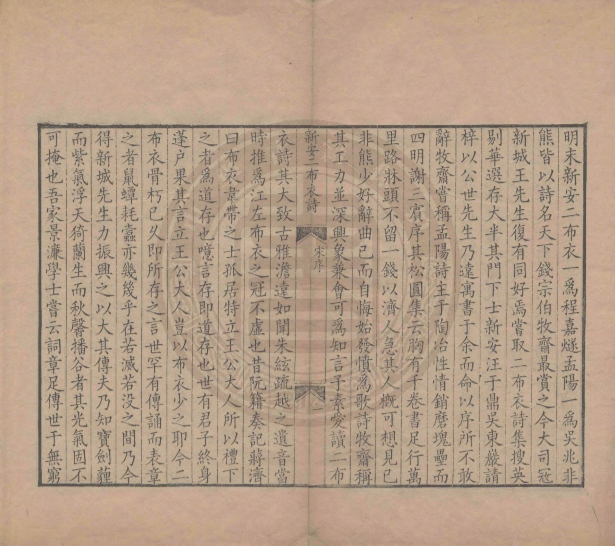 明末新安二布衣一為程嘉燧孟陽一為吳兆非
熊皆以詩名天下錢宗伯牧齋最賞之今大司冦
新城王先生復有同好焉嘗取二布衣詩集搜英
剔華選存大半其門下士新安汪于鼎吳東巖請
梓以公世先生乃遠寓書于余而命以序所不敢
辭牧齋嘗稱孟陽詩主于陶冶性情銷磨塊壘而
四明謝三賓序其松圓集云胸有千卷書足行萬
里路牀頭不留一錢以濟人急其人概可想見已
非熊少好辭曲已而自悔始發憤為歌詩牧齋稱
其工力並深興象兼會可為知言予素愛讀二布
新安二布衣詩
宋序
一
衣詩其大致古雅澹逵如聞朱絃疏越之遺音當
時推為江左布衣之冠不虛也昔阮籍奏記蔣濟
曰布衣韋帶之士孤居特立王公大人所以禮下
之者為道存也噫言存即道存也世有君子終身
蓬户果其言立王公大人豈以布衣少之耶今二
布衣骨朽已久即所存之言世罕有傳誦而表章
之者鼠蟫耗蠧亦幾幾乎在若滅若没之間乃今
得新城先生力振興之以大其傳夫乃知寶劍薶
而紫氣浮天猗蘭生而秋馨播谷者其光氣固不
可掩也吾家景濂學士嘗云詞章足傳世于無窮